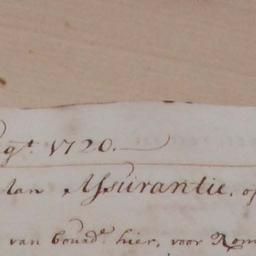 qt. 1720.
van Assurantie, op
van bovade. hier, voor Rom